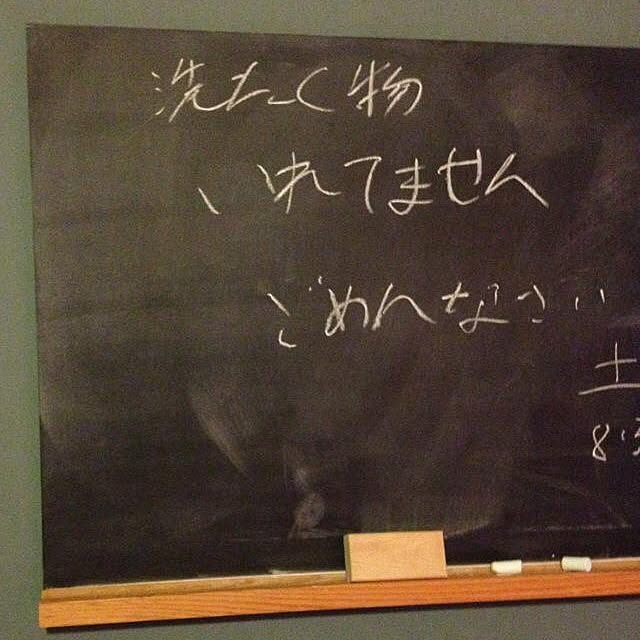 洗たく物
いれてません
ごめんなさい
土
8:3